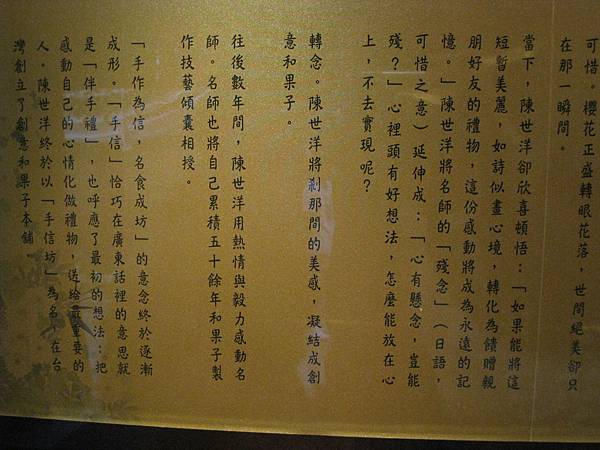 可惜。櫻花正盛轉眼花落，世間絕美卻只
在那一瞬間。
當下，陳世洋卻欣喜頓悟：「如果能將這
短暫美麗，如詩似畫心境，轉化為饋贈親
朋好友的禮物，這份感動將成為永遠的記
憶。」陳世洋將名師的「殘念」（日語，
可惜之意）延伸成：「心有懸念，豈能
殘？」心裡頭有好想法，怎麼能放在心
上，不去實現呢？
轉念。陳世洋將剎那間的美感，凝結成創
意和果子。
往後數年間，陳世洋用熱情與毅力感動名
師。名師也將自己累積五十餘年和果子製
作技藝傾囊相授。
「手作為信，名食成坊」的意念終於逐漸
成形。「手信」恰巧在廣東話裡的意思就
是「伴手禮」，也呼應了最初的想法：把
感動自己的心情化做禮物，送給最重要的
人。陳世洋終於以「手信坊」為名，在台
灣創立了創意和果子本舖。